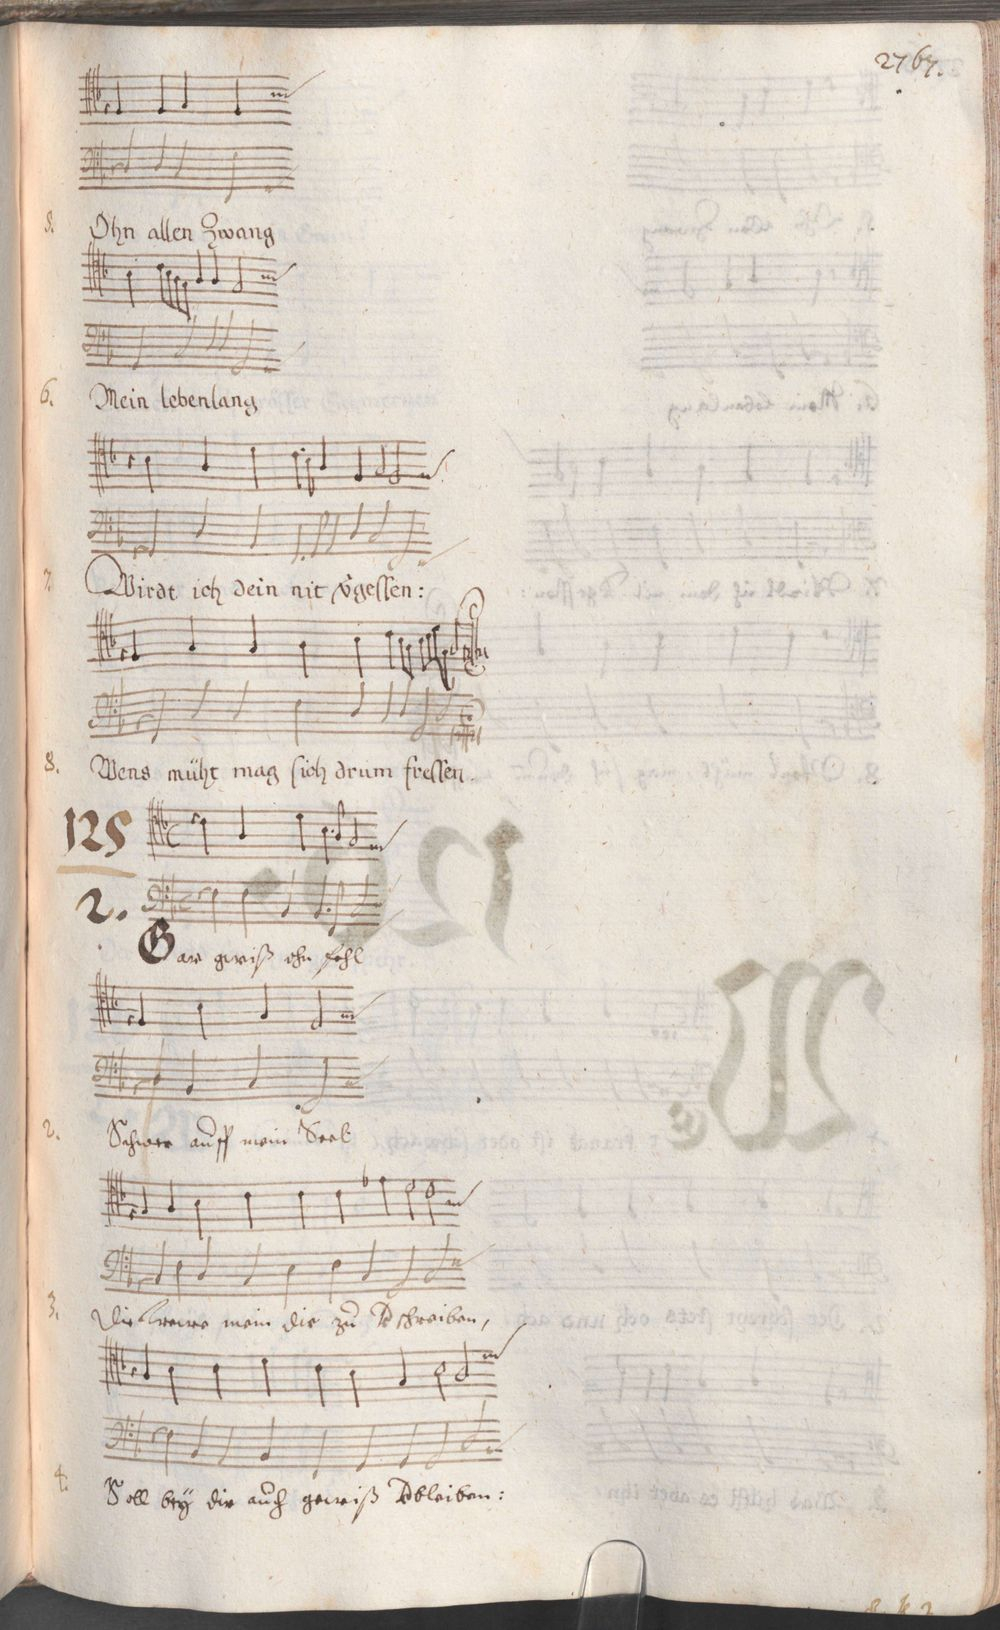 2767.
5. Ohn allen Zwang
6. Mein lebenlang
7. Wirdt ich dein nit v̄gessen:
8. Wens müht mag sich drum fressen.
125
2.
Gar gewiß ohn fehl
2. Schwer auff mein Seel
3. Die trewe mein dir zu v̄schreiben,
4. Soll bey dir auch gewiß v̄bleiben: